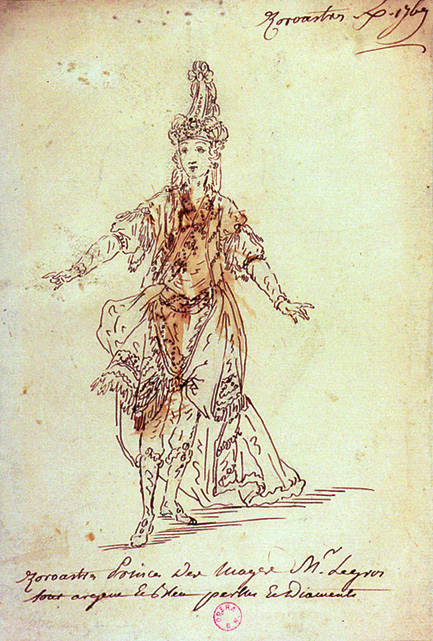 Zoroastre
Zoroastre Prince Des Mages Mr Legros
tout argent Et bleu perlles Et Diaments
OPERA